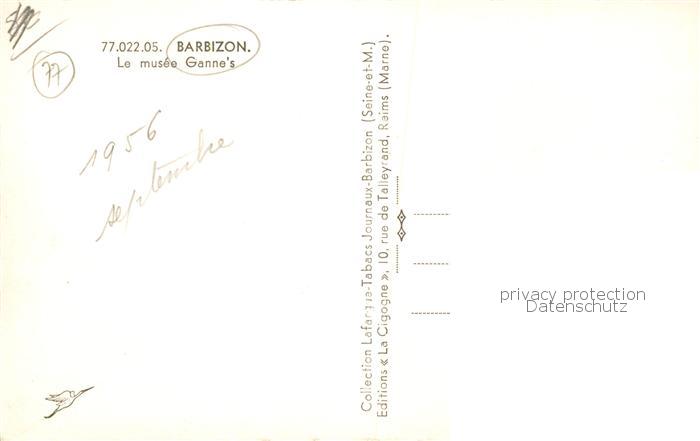 77
77.022.05. BARBIZON.
Le musée Ganne's
1956
septembre
Collection Lafargue-Tabacs Journaux-Barbizon (Seine-et-M.)
Editions « La Cigogne », 10, rue de Talleyrand, Reims (Marne).
privacy protection
Datenschutz